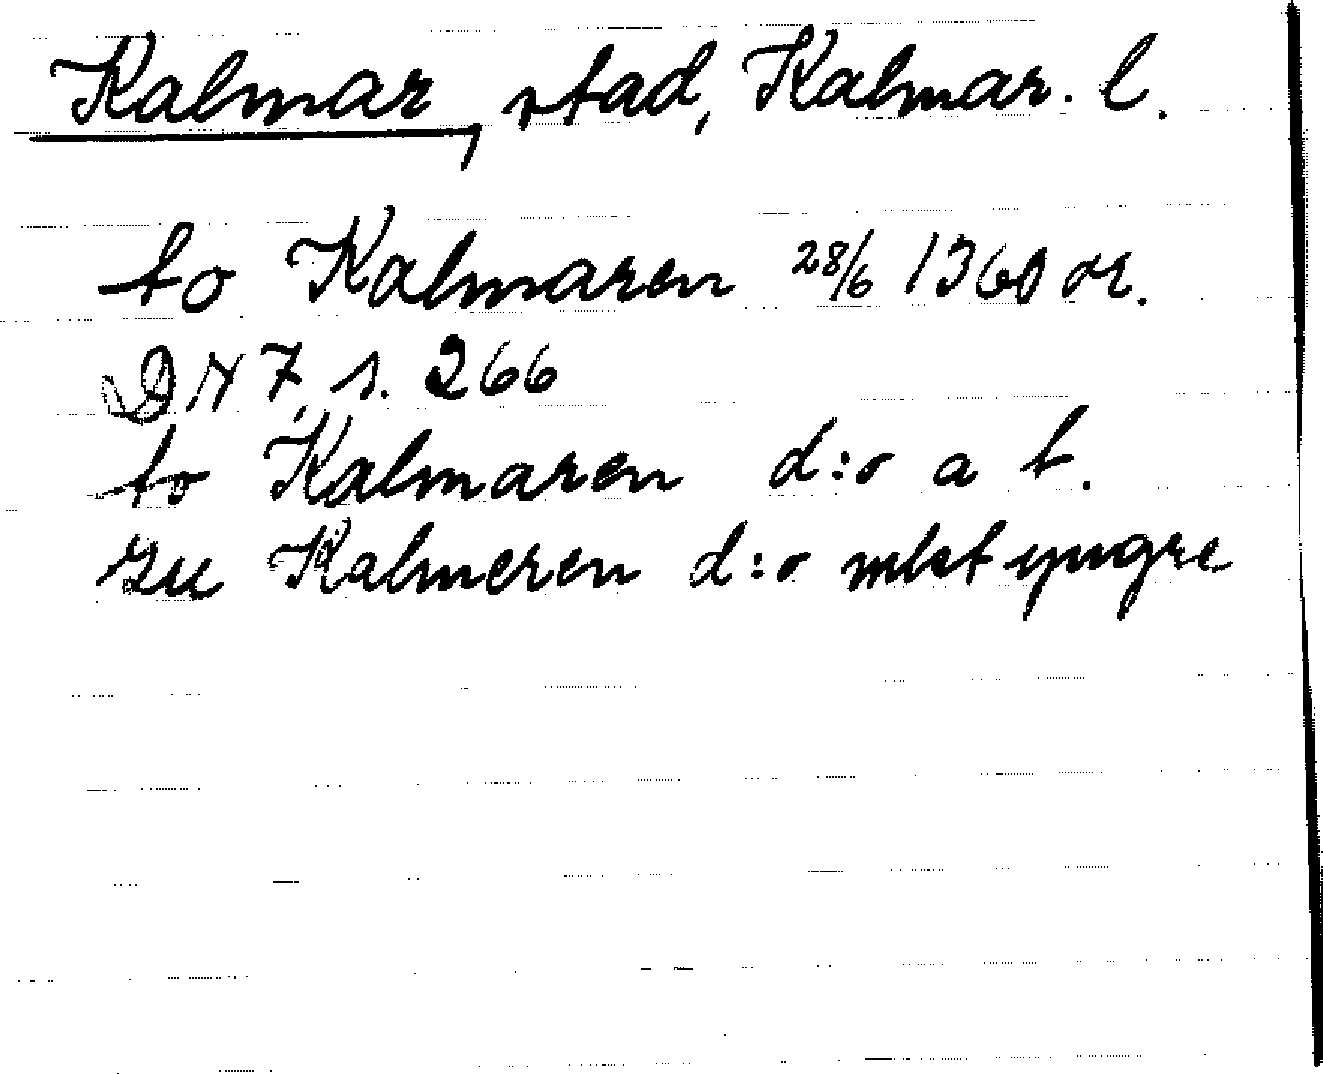 Kalmar, stad, Kalmar. l.
to Kalmaren 28/6 1360 or.
DN 7, s. 266
to Kalmaren d:o a t.
zu Kalmeren d:o mkt yngre